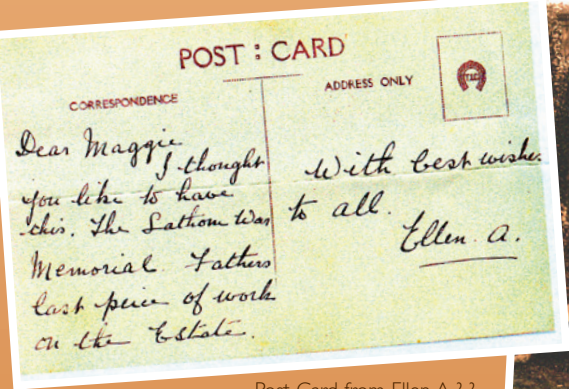 POST : CARD
CORRESPONDENCE
ADDRESS ONLY
Dear Maggie
I thought
you like to have
this. The Lathom War
Memorial Fathers
last peice of work
on the Estate.
With best wishes
to all.
Ellen A.
Post Card from Ellen A ? ?